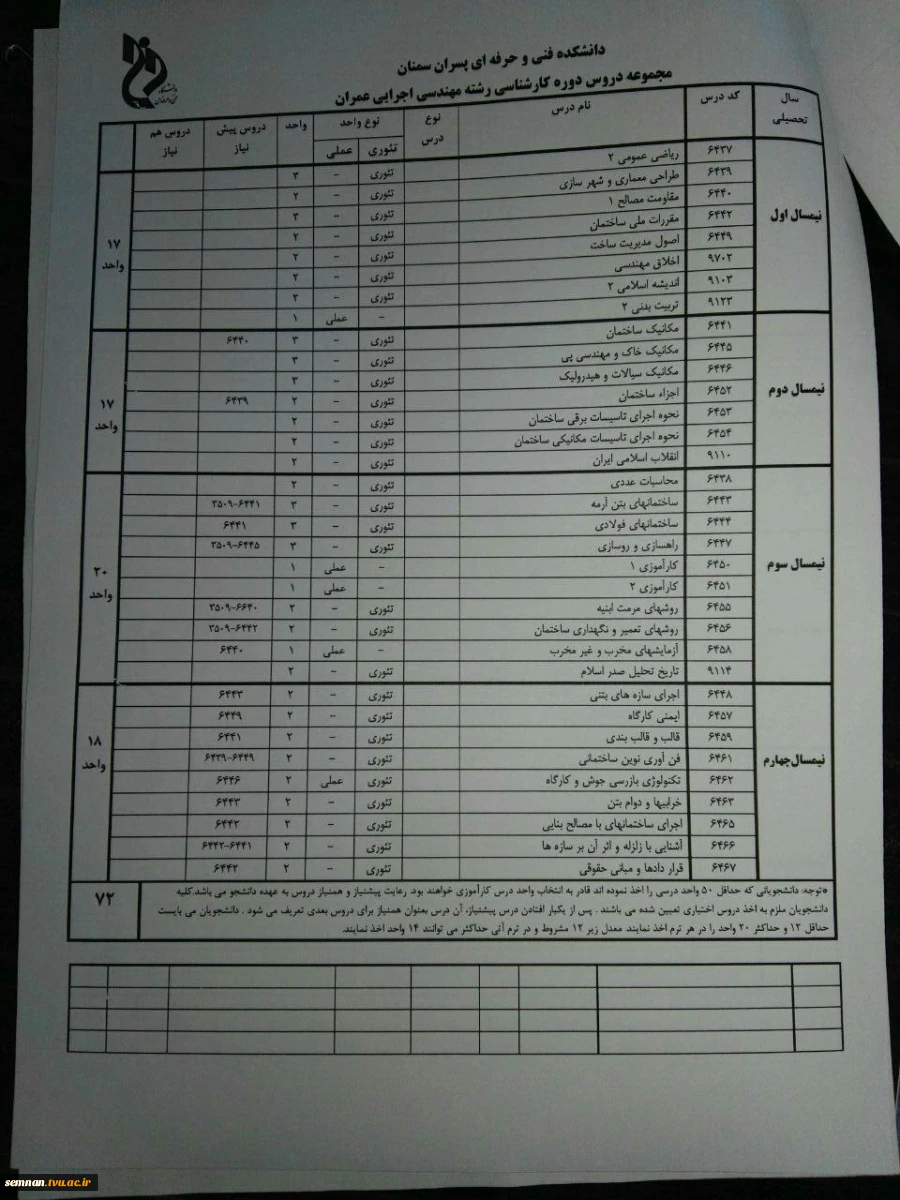 دانشکده فنی و حرفه ای پسران سمنان
مجموعه دروس دوره کارشناسی رشته مهندسی اجرایی عمران
سال تحصیلی | کد درس | نام درس | نوع درس | نوع واحد | تئوری | عملی | واحد | دروس پیش نیاز | دروس هم نیاز
نیمسال اول
۶۴۳۷ ریاضی عمومی ۲ تئوری - ۳
۶۴۳۹ طراحی معماری و شهر سازی تئوری - ۲
۶۴۴۰ مقاومت مصالح ۱ تئوری - ۳
۶۴۴۲ مقررات ملی ساختمان تئوری - ۲
۶۴۴۹ اصول مدیریت ساخت تئوری - ۲
۹۷۰۲ اخلاق مهندسی تئوری - ۲
۹۱۰۳ اندیشه اسلامی ۲ تئوری - ۲
۹۱۲۳ تربیت بدنی ۲ - عملی ۱
۱۷ واحد
نیمسال دوم
۶۴۴۱ مکانیک ساختمان تئوری - ۳ ۶۴۴۰
۶۴۴۵ مکانیک خاک و مهندسی پی تئوری - ۳
۶۴۴۶ مکانیک سیالات و هیدرولیک تئوری - ۳
۶۴۵۲ اجزاء ساختمان تئوری - ۲ ۶۴۳۹
۶۴۵۳ نحوه اجرای تاسیسات برقی ساختمان تئوری - ۲
۶۴۵۴ نحوه اجرای تاسیسات مکانیکی ساختمان تئوری - ۲
۹۱۱۰ انقلاب اسلامی ایران تئوری - ۲
۱۷ واحد
نیمسال سوم
۶۴۳۸ محاسبات عددی تئوری - ۲
۶۴۴۳ ساختمانهای بتن آرمه تئوری - ۳ ۳۵۰۹-۶۴۴۱
۶۴۴۴ ساختمانهای فولادی تئوری - ۳ ۶۴۴۱
۶۴۴۷ راهسازی و روسازی تئوری - ۳ ۳۵۰۹-۶۴۴۵
۶۴۵۰ کارآموزی ۱ - عملی ۱
۶۴۵۱ کارآموزی ۲ - عملی ۱
۶۴۵۵ روشهای مرمت ابنیه تئوری - ۲ ۳۵۰۹-۶۶۴۰
۶۴۵۶ روشهای تعمیر و نگهداری ساختمان تئوری - ۲ ۳۵۰۹-۶۴۴۲
۶۴۵۸ آزمایشهای مخرب و غیر مخرب - عملی ۱ ۶۴۴۰
۹۱۱۴ تاریخ تحلیل صدر اسلام تئوری - ۲
۲۰ واحد
نیمسال چهارم
۶۴۴۸ اجرای سازه های بتنی تئوری - ۲ ۶۴۴۳
۶۴۵۷ ایمنی کارگاه تئوری - ۲ ۶۴۴۹
۶۴۵۹ قالب و قالب بندی تئوری - ۲ ۶۴۴۱
۶۴۶۱ فن آوری نوین ساختمانی تئوری - ۲ ۶۴۳۹-۶۴۴۹
۶۴۶۲ تکنولوژی بازرسی جوش و کارگاه تئوری عملی ۲ ۶۴۴۶
۶۴۶۳ خرابیها و دوام بتن تئوری - ۲ ۶۴۴۳
۶۴۶۵ اجرای ساختمانهای با مصالح بنایی تئوری - ۲ ۶۴۴۲
۶۴۶۶ آشنایی با زلزله و اثر آن بر سازه ها تئوری - ۲ ۶۴۴۲-۶۴۴۱
۶۴۶۷ قرار دادها و مبانی حقوقی تئوری - ۲ ۶۴۴۲
۱۸ واحد
*توجه: دانشجویانی که حداقل ۵۰ واحد درسی را اخذ نموده اند قادر به انتخاب واحد درس کارآموزی خواهند بود. رعایت پیشنیاز و همنیاز دروس به عهده دانشجو می باشد.کلیه
دانشجویان ملزم به اخذ دروس اختیاری تعیین شده می باشند . پس از یکبار افتادن درس پیشنیاز، آن درس بعنوان همنیاز برای دروس بعدی تعریف می شود . دانشجویان می بایست
حداقل ۱۲ و حداکثر ۲۰ واحد را در هر ترم اخذ نمایند. معدل زیر ۱۲ مشروط و در ترم آتی حداکثر می توانند ۱۴ واحد اخذ نمایند.
۷۲
semnan.tvu.ac.ir